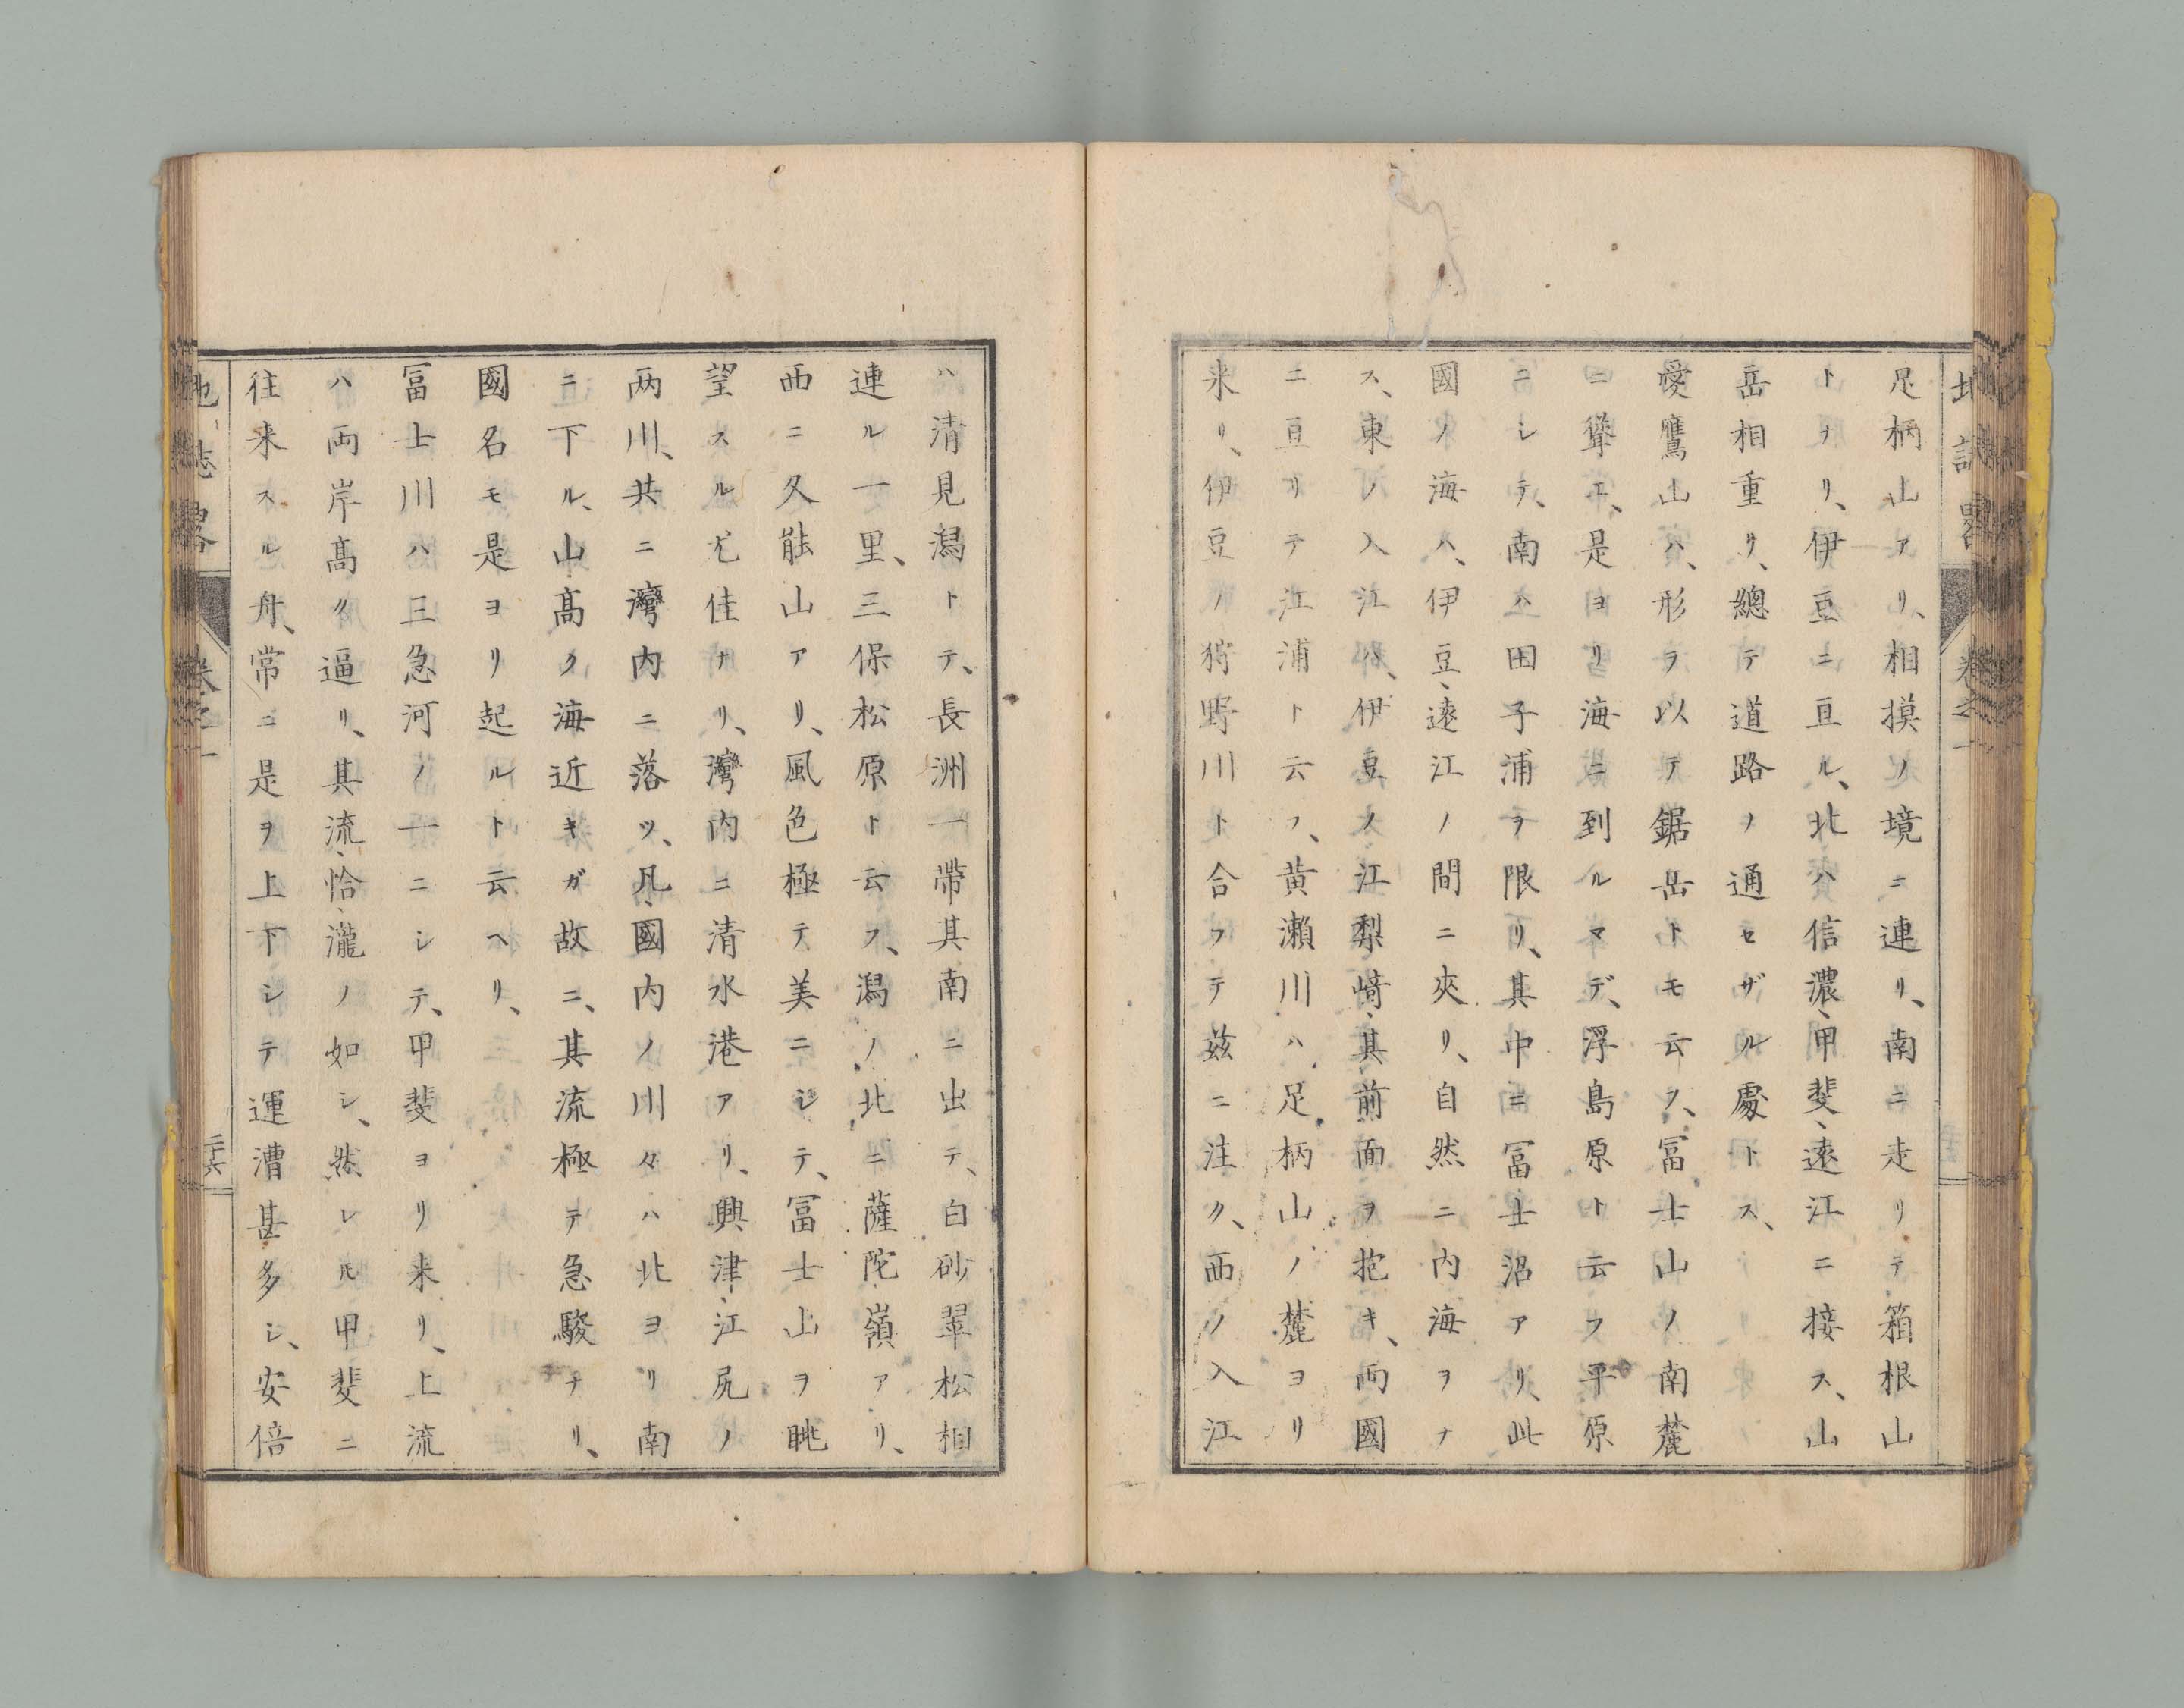 地誌畧 卷之一
足柄山アリ、相摸ノ境ニ連リ、南ニ走リテ箱根山
トナリ、伊豆ニ亘ル、北ハ信濃、甲斐、遠江ニ接ス、山
岳相重リ、總テ道路ノ通セザル處トス、
愛鷹山ハ、形ヲ以テ鋸岳トモ云フ、冨士山ノ南麓
ニ聳エ、是ヨリ海ニ到ルマデ、浮島原ト云フ平原
ニシテ、南ハ田子浦ヲ限リ、其中ニ冨士沼アリ、此
國ノ海ハ、伊豆、遠江ノ間ニ夾リ、自然ニ内海ヲナ
ス、東ノ入江ハ、伊豆ノ江梨﨑、其前面ヲ抱キ、両國
ニ亘リテ江浦ト云フ、黄瀬川ハ、足柄山ノ麓ヨリ
来リ、伊豆ノ狩野川ト合フテ茲ニ注ク、西ノ入江
ハ清見潟トテ、長洲一帶其南ニ出テ、白砂翠松相
連ル一里、三保松原ト云フ、潟ノ北ニ薩陀嶺アリ、
西ニ久能山アリ、風色極テ美ニシテ、冨士山ヲ眺
望スルモ佳ナリ、灣内ニ清水港アリ、興津、江尻ノ
两川、共ニ灣内ニ落ツ、凡、國内ノ川々ハ北ヨリ南
ニ下ル、山髙ク海近キガ故ニ、其流極テ急駿ナリ、
國名モ是ヨリ起ルト云ヘリ、
冨士川ハ三急河ノ一ニシテ、甲斐ヨリ来リ、上流
ハ両岸髙ク逼リ、其流、恰、瀧ノ如シ、然レ𪜈甲斐ニ
往来スル舟、常ニ是ヲ上下シテ運漕甚多シ、安倍
地誌畧 卷之一 二十六